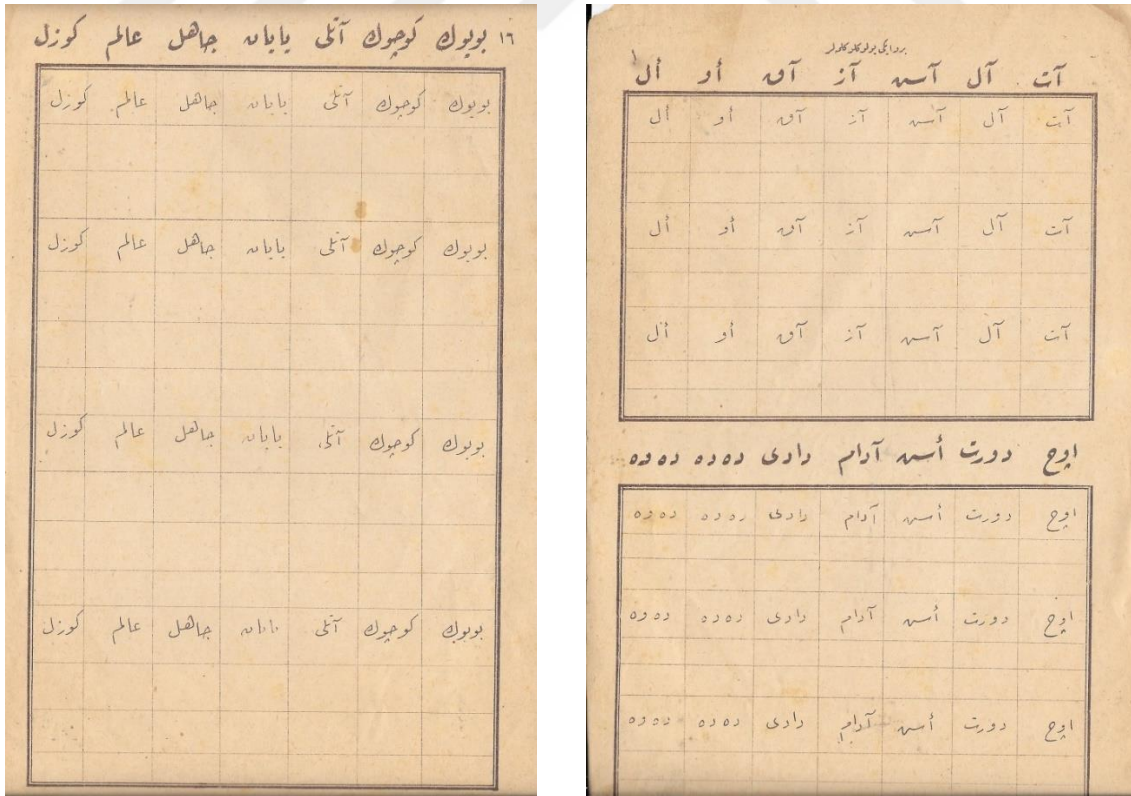 ١٦ بویوك كوچوك آتلی یایان جاهل عالم كوزل
بویوك كوچوك آتلی یایان جاهل عالم كوزل
بویوك كوچوك آتلی یایان جاهل عالم كوزل
بویوك كوچوك آتلی یایان جاهل عالم كوزل
بویوك كوچوك آتلی یایان جاهل عالم كوزل
آت آل آس آز آق أو أل
آت آل آس آز آق أو أل
آت آل آس آز آق أو أل
آت آل آس آز آق أو أل
اوچ دورت أس آدام دادی ده ده ده وه
اوچ دورت أس آدام دادی ده ده ده وه
اوچ دورت أس آدام دادی ده ده ده وه
اوچ دورت أس آدام دادی ده ده ده وه